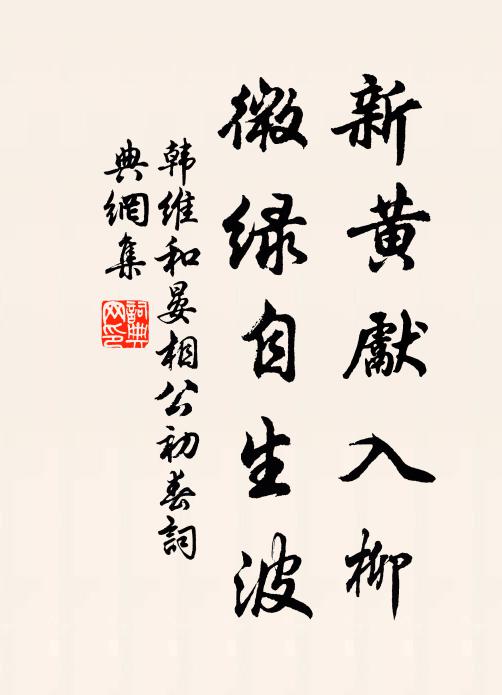 新黄獻入柳
微绿自生波
韩维和晏相公初春詞
典網集
詞典
网印